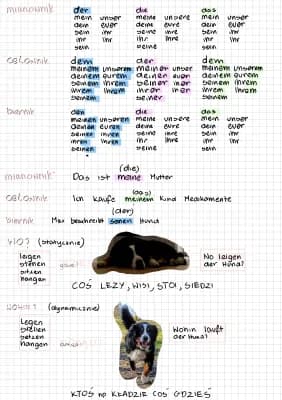 mianownik der die das
mein unser meine unsere mein unser
dein euer deine eure dein euer
sein ihr seine ihre sein ihr
ihr Ihr ihre Ihre ihr Ihr
sein seine sein
celownik dem der dem
meinem unserem meiner unserer meinem unserem
deinem eurem deiner eurer deinem eurem
seinem ihrem seiner ihrer seinem ihrem
ihrem Ihrem ihrer Ihrer ihrem Ihrem
seinem seiner seinem
biernik den die das
meinen unseren meine unsere mein unser
deinen euren deine eure dein euer
seinen ihren seine ihre sein ihr
ihren Ihren ihre Ihre ihr Ihr
seinen seine sein
(die)
mianownik Das ist meine Mutter
(das)
celownik Ich kaufe meinem Kind Medikamente
(der)
biernik Max beschreibt seinen Hund
WO? (statycznie)
liegen
stehen
sitzen
hängen
Wo leigen
der Hund?
COŚ LEŻY, WISI, STOI, SIEDZI
WOHIN? (dynamicznie)
legen
stellen
setzen
hängen
Wohin läuft
der Hund?
KTOŚ np KŁADZIE COŚ GDZIEŚ